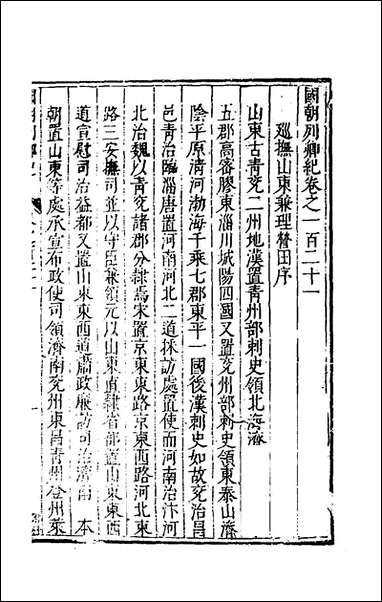 國朝列卿紀卷之一百二十一
廵撫山東兼理營田序
山東古青兖二州地漢置青州部刺史領北海濟
五郡高密膠東淄川城陽四國又置兖州部刺史領東泰山濟
陰平原清河渤海千乘七郡東平一國後漢刺史如故兖治昌
邑青治臨淄唐置河南河北二道採訪處置使而河南治汴河
北治魏以青兖諸郡分隷焉宋置京東東路京東西路河北東
路三安撫司並以守臣兼領元以山東直隷省部置山東東西
道宣慰司治益都又置山東東西道肅政廉訪司治濟南 本
朝置山東等處承宣布政使司領濟南兖州東昌青州登州萊